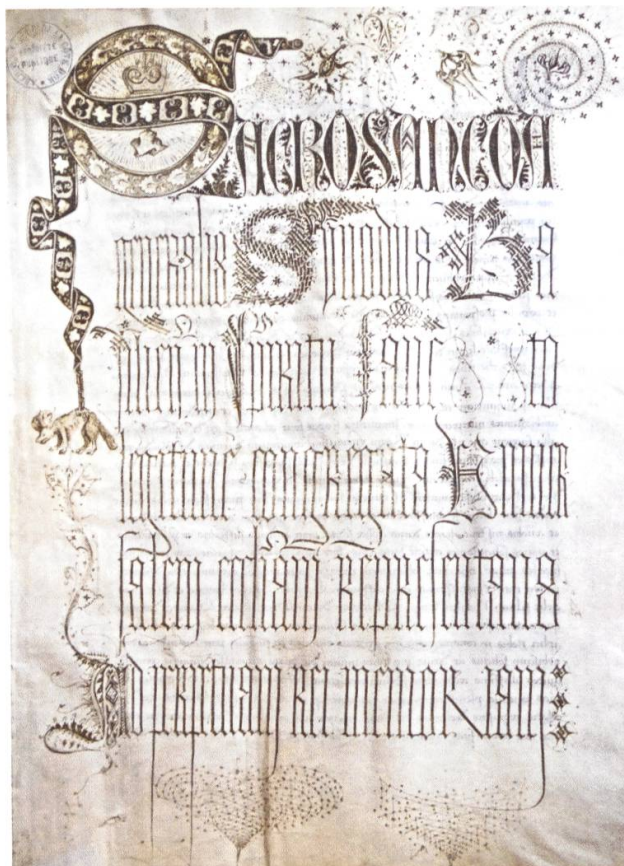 SACROSANCTA
generalis Synodus Ba
silien in spiritu sanc to
congregata Univer
salem ecclesiam representans
Ad perpetuam rei memoriam